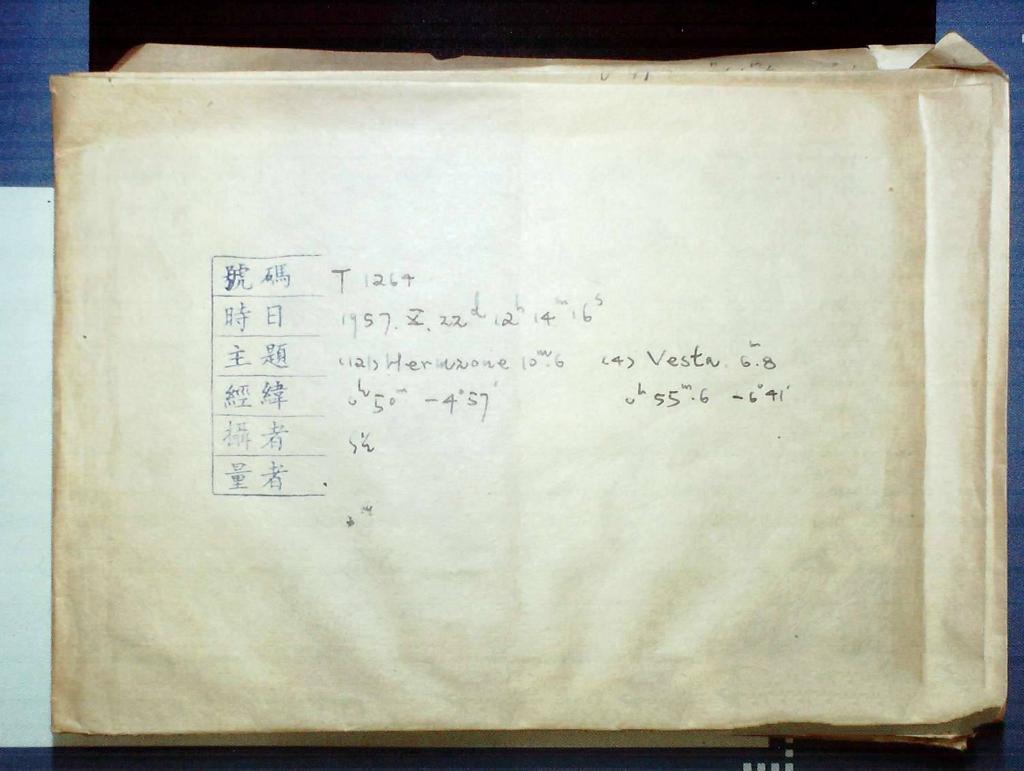 號碼 T 1264
時日 1957. X. 22ᵈ 12ʰ 14ᵐ 16ˢ
主題 (121) Hermione 10ᵐ.6 (4) Vesta 6ᵐ.8
經緯 0ʰ 50ᵐ -4°57' 0ʰ 55ᵐ.6 -6°41'
攝者
量者